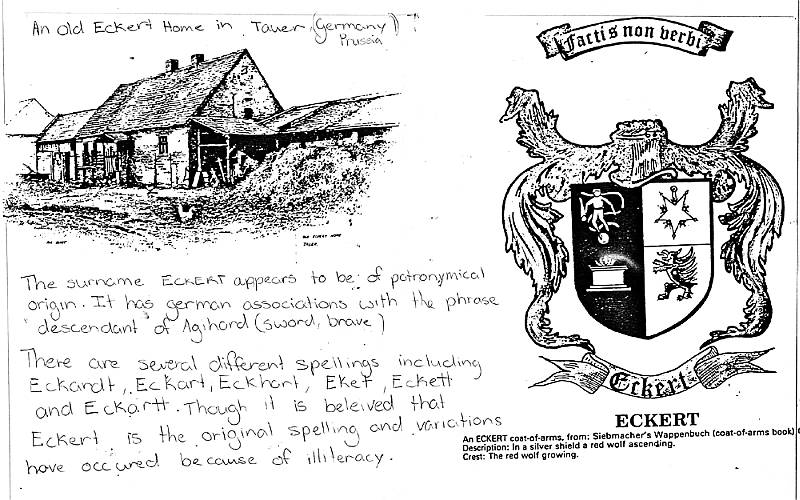 An Old Eckert Home in Tauer, (Germany)
Prussia
OLD ECKERT HOME
TAUER
The surname ECKERT appears to be of patronymical
origin. It has german associations with the phrase
"descendant" of Agihard (sword, brave)
There are several different spellings including
Eckardt, Eckart, Eckhart, Eket, Eckett
and Eckartt. Though it is beleived that
Eckert is the original spelling and variations
have occured because of illiteracy.
Factis non verbi
Eckert
ECKERT
An ECKERT coat-of-arms, from: Siebmacher's Wappenbuch (coat-of-arms book)
Description: In a silver shield a red wolf ascending.
Crest: The red wolf growing.